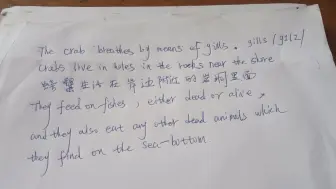 The crab breathes by means of gills. gills /gilz/
Crabs live in holes in the rocks near the shore
螃蟹生活在岸边附近的岩洞里面
They feed on fishes, either dead or alive,
and they also eat any other dead animals which
they find on the sea-bottom